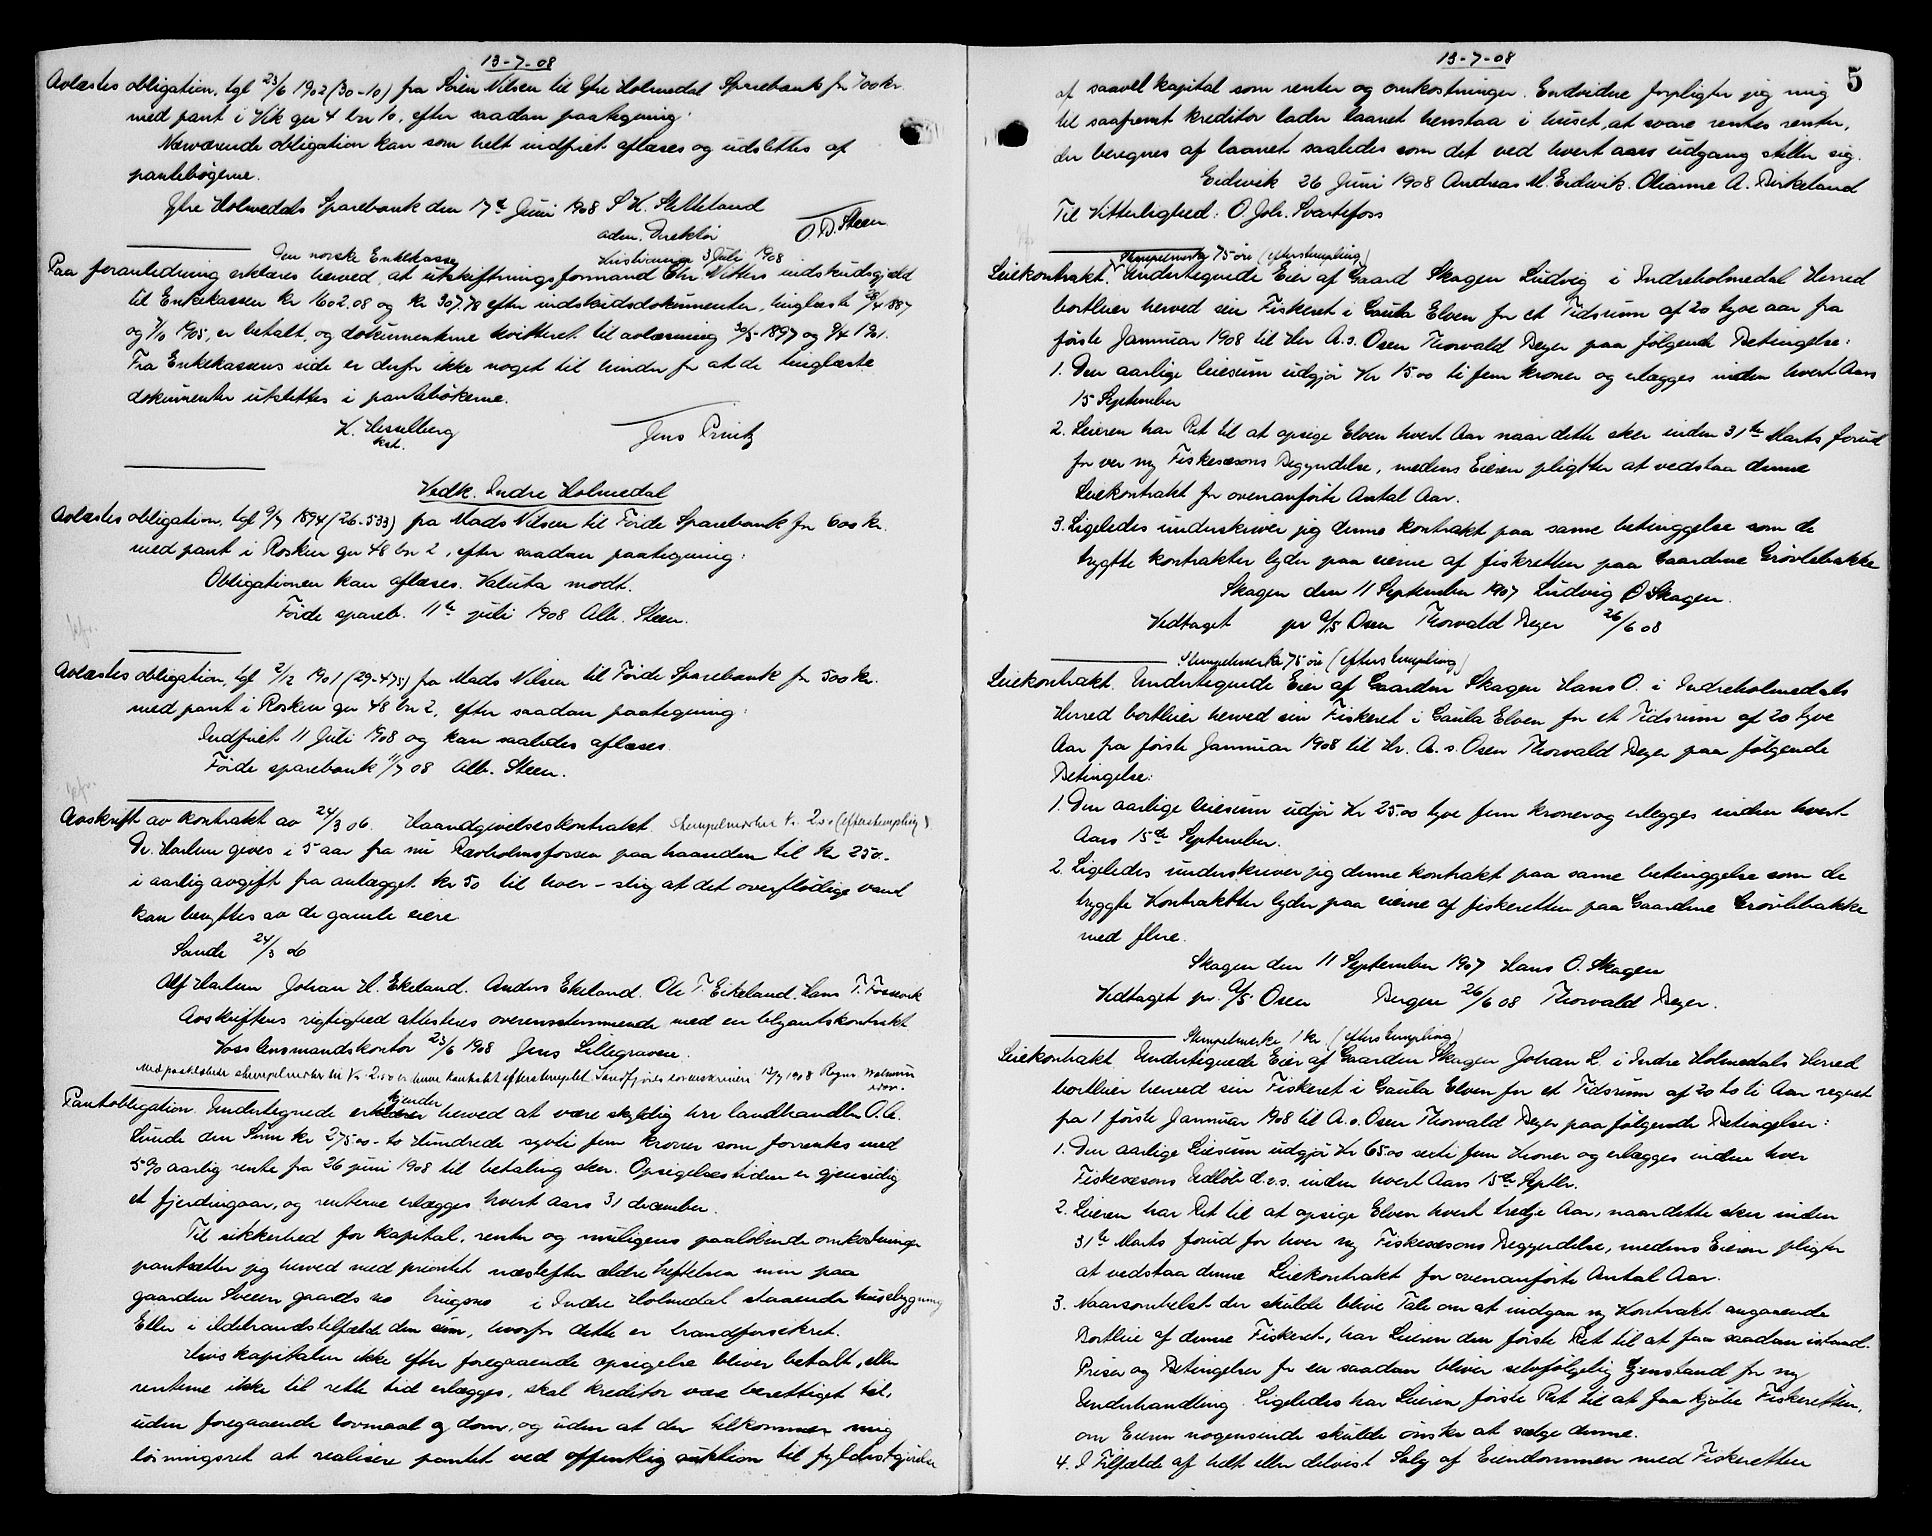 13-7-08
Avlæstes obligation, tgl 23/6 1902 (30-10) fra Sören Nilsen til Ytre Holmedal Sparebank for 700 kr.
med pant i Vik gnr 4 bnr 10, efter saadan paategning:
Nærværende obligation kan som helt indfriet aflæses og udslettes af
pantebøgerne.
Ytre Holmedals Sparebank den 7de Juni 1908 S. K.
adm. Direktör O. D. Steen
Den norske Enkekasse Kristiania 3 Juli 1908
Paa foranledning erklæres herved, at utskiftningsformand Chr. Vitters indskudsgjæld
til Enkekassen kr 1602.08 og kr 307.78 efter indskudsdokumenter, tinglæste 1887
og 7/10 1905, er betalt, og dokumenterne kvitteret til avlæsning 30/5-1897 og
Fra Enkekassens side er derfor ikke noget til hinder for at de tinglæste
dokumenter utslettes i pantebökerne.
K. Hesselberg Jens Printz
kst.
Vedk. Indre Holmedal
Avlæstes obligation, tgl 9/7 1894 (26-533) fra Mads Nilsen til Förde Sparebank for 600 kr.
med pant i Rosken gnr 48 bnr 2, efter saadan paategning:
Obligationen kan aflæses. Valuta modt.
Förde spareb. 11te juli 1908 Alb. Steen.
Avlæstes obligation, tgl 2/12 1901 (29-475) fra Mads Nilsen til Förde Sparebank for 500 kr.
med pant i Rosken gnr 48 bnr 2, efter saadan paategning:
Indfriet 11 Juli 1908 og kan saaledes aflæses.
Förde sparebank 11/7 08 Alb. Steen.
Avskrift av kontrakt av 24/3 06. Haandgivelseskontrakt. Stempelmerker Kr. 2.00 (efterstempling).
Dr. Harlem gives i 5 aar fra nu Rævholmsfossen paa haanden til kr 250.-
i aarlig avgift fra anlægget kr 50 til hver - slig at det overflødige vand
kan benyttes av de gamle eiere.
Sande 24/3 06
Alf Harlem Johan H. Ekeland. Anders Ekeland. Ole T. Eikeland. Hans T. Fossevik
Avskriftens rigtighed attesteres overensstemmende med en
Voss lensmandskontor 23/6 1908 Jens Lillegraven.
Med paaklebede stempelmerker til Kr. 2.00 er denne kontrakt efterstemplet. Søndfjords sorenskriveri 13/7 1908 Ragnv.
Pantobligation. Undertegnede erkjender herved at være skyldig hrr landhandler O. A.
Lunde den Sum kr 275.00 - to Hundrede sytti fem kroner som forrentes med
5% aarlig rente fra 26 juni 1908 til betaling sker. Opsigelsestiden er gjensidig
et fjerdingaar, og renterne erlægges hvert aars 31 december.
Til sikkerhed for kapital, renter og muligens paaløbende omkostninger
pantsætter jeg herved med prioritet næstefter ældre heftelser min paa
gaarden Sveen gaards no brugsno i Indre Holmedal staaende husebygning
Eller i ildebrandstilfælde den sum, hvorfor dette er brandforsikret.
Hvis kapitalen ikke efter foregaaende opsigelse bliver betalt, eller
renterne ikke til rette tid erlægges, skal kreditor være berettiget til,
uden foregaaende lovmaal og dom, og uden at der tilkommer mig
løsningsret at realisere pantet ved offentlig auktion til fyldestgjørelse
13-7-08
5
af saavel kapital som renter og omkostninger. Endvidere forpligter jeg mig
til saafremt kreditor lader laanet henstaa i huset, at svare rentes renter,
der beregnes af laanet saaledes som det ved hvert aars udgang stiller sig.
Eidevik 26 Juni 1908 Andreas M. Eidevik. Olianne A. Birkeland
Til Vitterlighed: O. Joh. Svartefoss
Stempelmerke 75 öre (efterstempling)
Leiekontrakt. Undertegnede Eier af Gaard Skagen Ludvig i Indreholmedal Herred
bortleier herved sin Fiskeret i Gaula Elven for et Tidsrum af 20 tyve aar fra
første Januuar 1908 til Herr A.s. Osen Thorvald Beyer paa følgende Betingelse:
1. Den aarlige leiesum udgjør Kr 15.00 ti fem kroner og erlægges inden hvert Aars
15 September
2. Leieren har Ret til at opsige Elven hvert Aar naar dette sker inden 31te Marts forud
for ver ny Fiskesæsons Begyndelse, medens Eieren pligtter at vedstaa denne
Leiekontrakt for ovenanførte Antal Aar.
3. Ligeledes underskriver jeg denne kontrakt paa same betinggelse som de
bygte kontrakter lyder paa eierne af fiskeretten paa Gaardene Grövlebakke
Skagen den 11 September 1907 Ludvig O Skagen.
Vedtaget pr A/S Osen Thorvald Beyer 26/6 08
Stempelmerke 75 öre (efterstempling)
Leiekontrakt. Undertegnede Eier af Gaarden Skagen Hans O. i Indreholmedals
Herred bortleier herved sin Fiskeret i Gaula Elven for et Tidsrum af 20 tyve
Aar fra første Januuar 1908 til Hr. A.s. Osen Thorvald Beyer paa følgende
Betingelse:
1. Den aarlige leiesum udjør Kr 25.00 tyve fem kroner og erlegges inden hvert
Aars 15de September.
2. Ligeledes underskriver jeg denne kontrakt paa same betinggelse som de
bygte Kontraktter lyder paa eierne af fiskeretten paa Gaardene Grövlebakke
med flere.
Skagen den 11 September 1907 Hans O. Skagen
Vedtaget pr. A/S Osen Bergen 26/6 08 Thorvald Beyer.
Stempelmerke 1 kr (efterstempling)
Leiekontrakt Undertegnede Eier af Gaarden Skagen Johan L. i Indre Holmedals Herred
bortleier herved sin Fiskeret i Gaula Elven for et Tidsrum af 20 to ti Aar regnet
fra 1 første Januuar 1908 til A.s. Osen Thorvald Beyer paa følgende Betingelser:
1. Den aarlige Leiesum udgjør Kr 65.00 seksti fem Kroner og erlægges inden hver
Fiskesesons Udløb d.v.s. inden hvert Aars 15de Septbr.
2. Leieren har Ret til at opsige Elven hvert tredje Aar, naar dette sker inden
31te Marts forud for hver ny Fiskesæsons Begyndelse, medens Eieren pligter
at vedstaa denne Leiekontrakt for ovenanførte Antal Aar.
3. Naarsomhelst der skulde blive Tale om at indgaa ny Kontrakt angaaende
Bortleie af denne Fiskeret, har Leieren den første Ret til at faa saadan istand.
Priser og Betingelser for en saadan bliver selvfølgelig Gjenstand for ny
Underhandling. Ligeledes har Leieren første Ret til at faa kjøbe Fiskeretten,
om Eieren nogensinde skulde ønske at sælge denne.
4. I Tilfælde af helt eller delvist Salg af Eiendommen med Fiskeretten